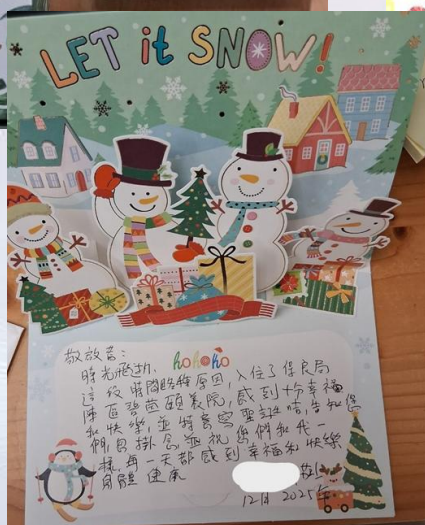 LET it SNOW!
敬啟者：
hohoho
時光飛逝，
這段時間因特殊原因，入住了保良局
陳區碧茵頤養院，感到十分幸福
和快樂，並特意寫聖誕咭告知你
們，勿掛念並祝你們和我一
樣，每一天都感到幸福和快樂
身體健康
敬上
12月 2025年